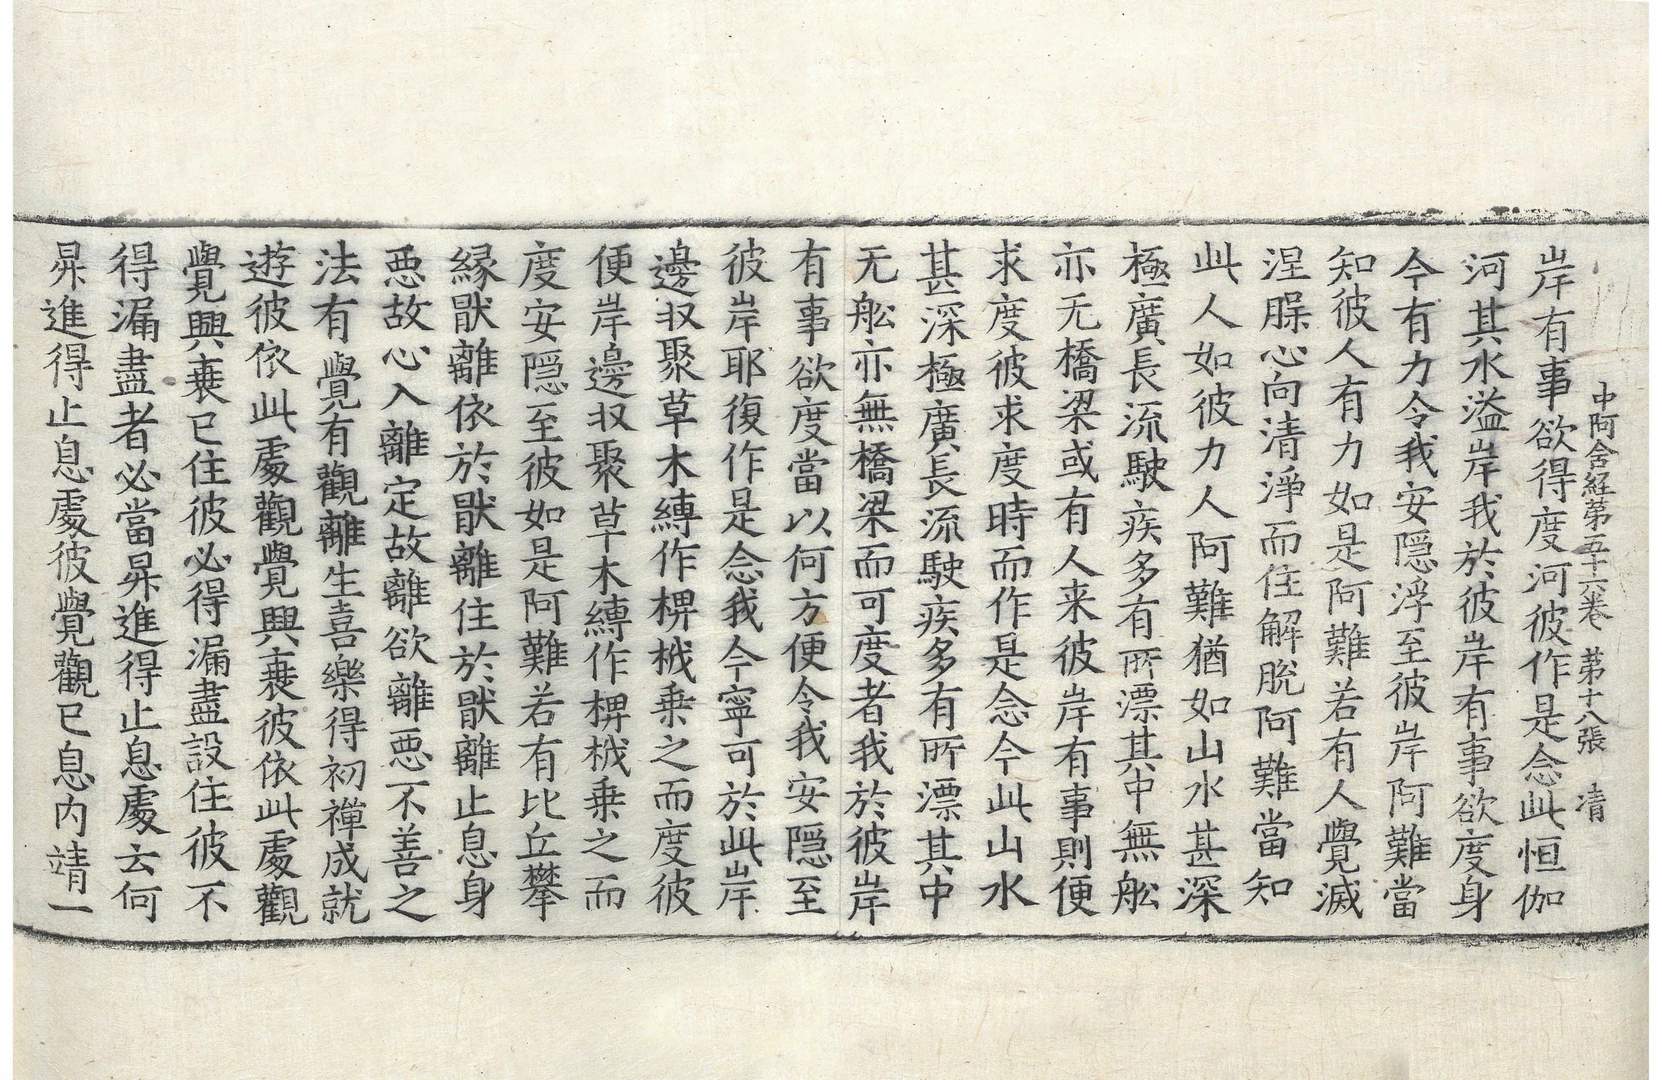 中阿含経第五十六卷 第十八張 清
岸有事欲得度河彼作是念此恒伽
河其水溢岸我於彼岸有事欲度身
今有力令我安隠浮至彼岸阿難當
知彼人有力如是阿難若有人覺滅
涅槃心向清淨而住解脫阿難當知
此人如彼力人阿難猶如山水甚深
極廣長流駛疾多有所漂其中無舩
亦无橋梁或有人来彼岸有事則便
求度彼求度時而作是念今此山水
甚深極廣長流駛疾多有所漂其中
无舩亦無橋梁而可度者我於彼岸
有事欲度當以何方便令我安隠至
彼岸耶復作是念我今寧可於此岸
邊収聚草木縛作椑栰乗之而度彼
便岸邊収聚草木縛作椑栰乗之而
度安隠至彼如是阿難若有比丘攀
縁猒離依於猒離住於猒離止息身
惡故心入離定故離欲離惡不善之
法有覺有觀離生喜樂得初禪成就
遊彼依此處觀覺興衰彼依此處觀
覺興衰已住彼必得漏盡設住彼不
得漏盡者必當昇進得止息處云何
昇進得止息處彼覺觀已息内靖一